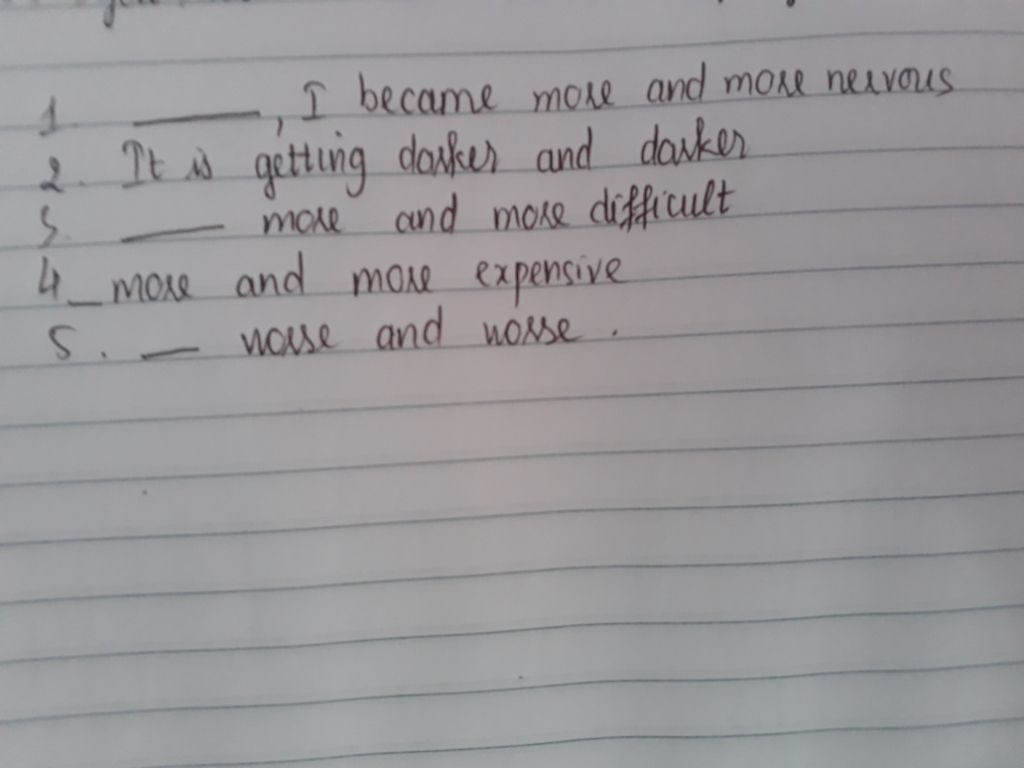 1. ____, I became more and more nervous
2. It is getting darker and darker
3. ____ more and more difficult
4 _ more and more expensive
5. __ worse and worse.